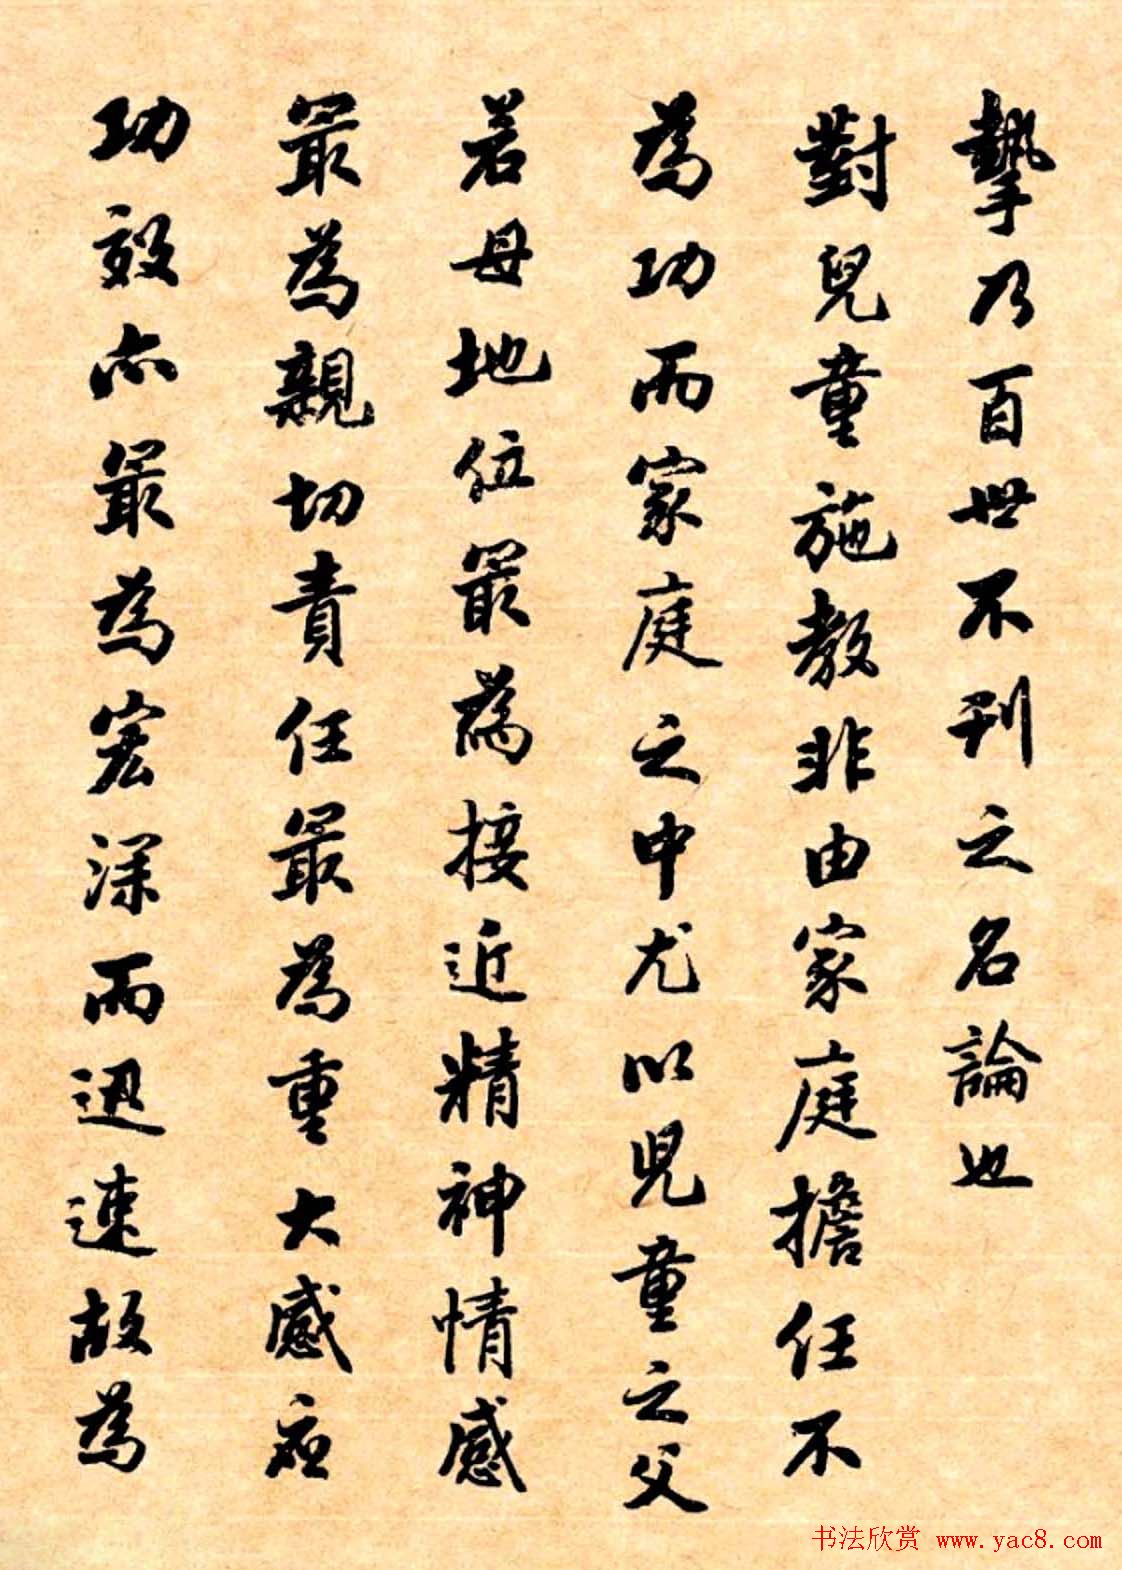 摯乃百世不刊之名論也
對兒童施教非由家庭擔任不
為功而家庭之中尤以兒童之父
若母地位最為接近精神情感
最為親切責任最為重大感应
功效亦最為宏深而迅速故為
书法欣赏 www.yac8.com